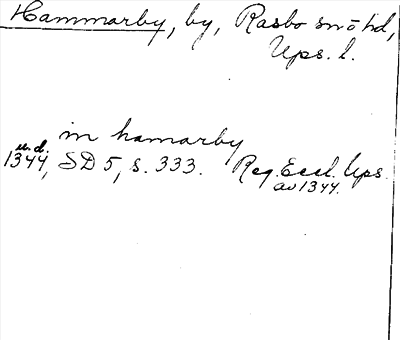 Hammarby, by, Rasbo sn o hd,
Ups. l.
in hamarby
u. d.
1344, SD 5, s. 333. Reg. Eccl. Ups.
av 1344.